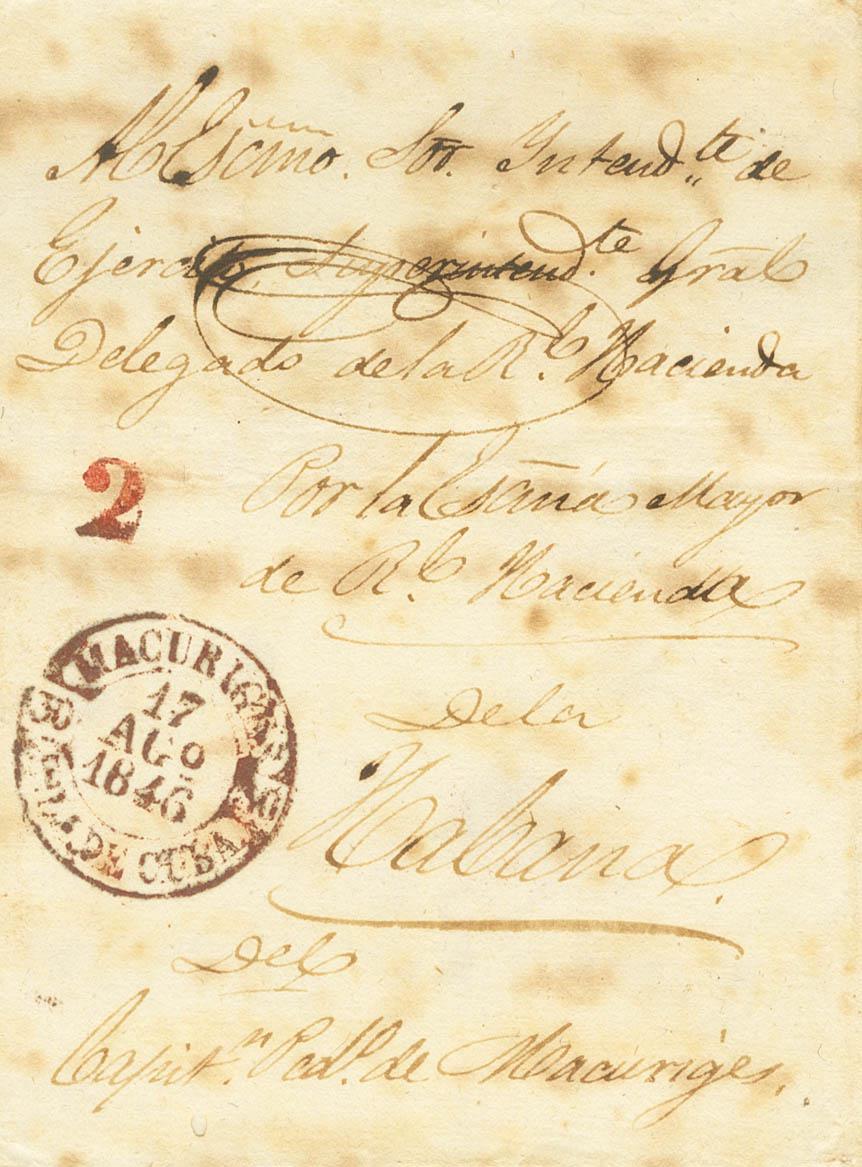 Al Escmo. Sor. Intend.te de
Ejercito, Superintend.te Gral
Delegado de la Rl. Hacienda
2
Por la Escñia Mayor
de Rl. Hacienda
MACURIGES
17
AGO
1846
DE CUBA
De la
Habana.
Del
Capit.n Ped.o de Macuriges.